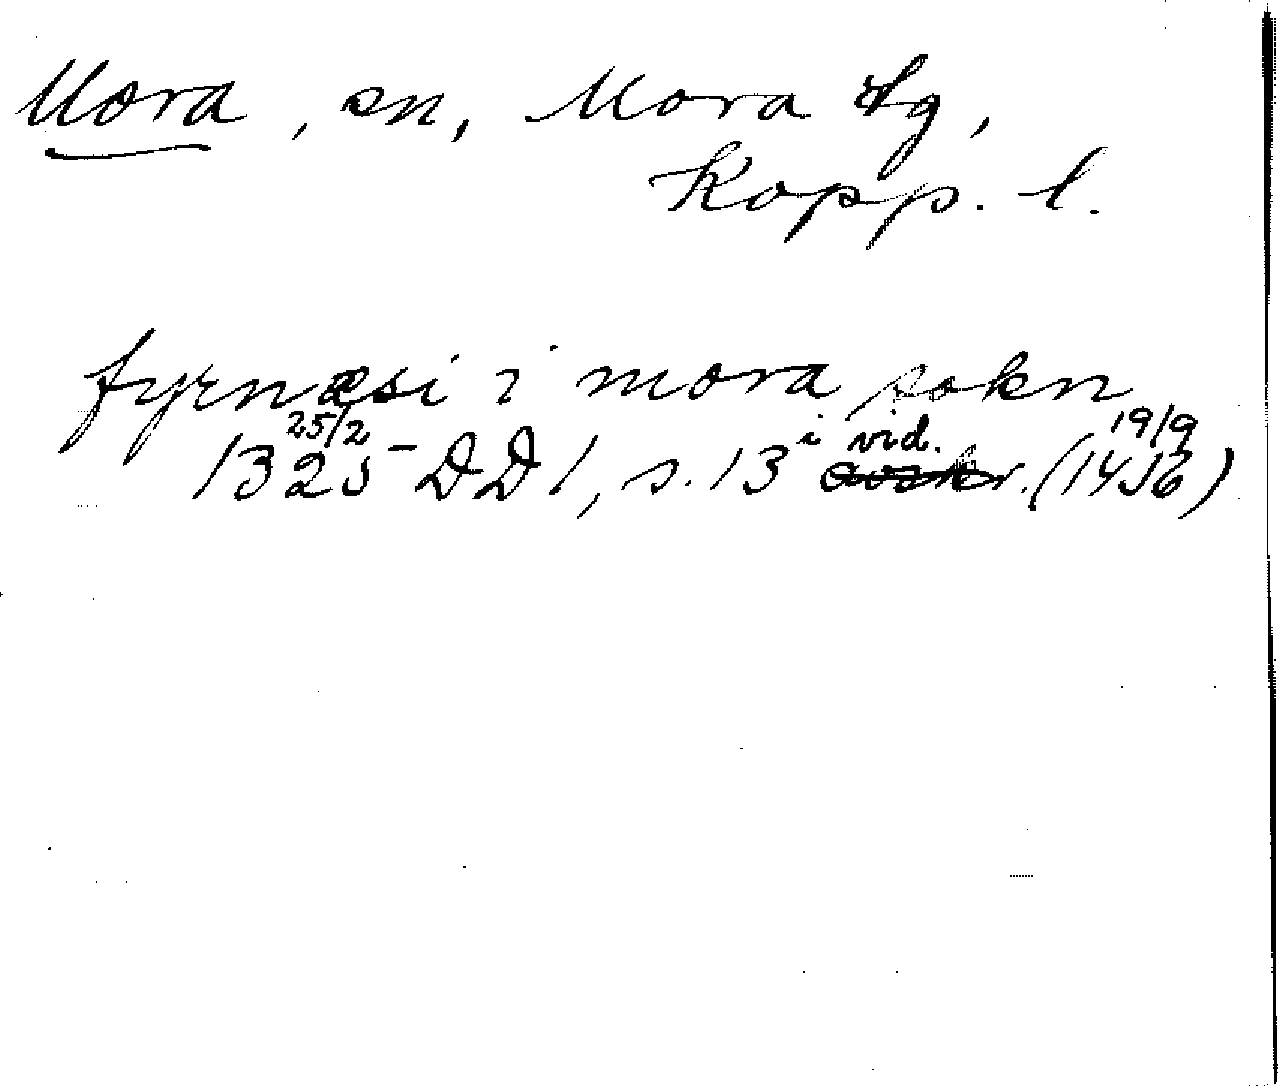 Mora, sn, Mora tg,
Kopp. l.
fyrnæsi i mora sokn
1325 25/2 DD 1, s. 13 i vid. (1456 19/9)